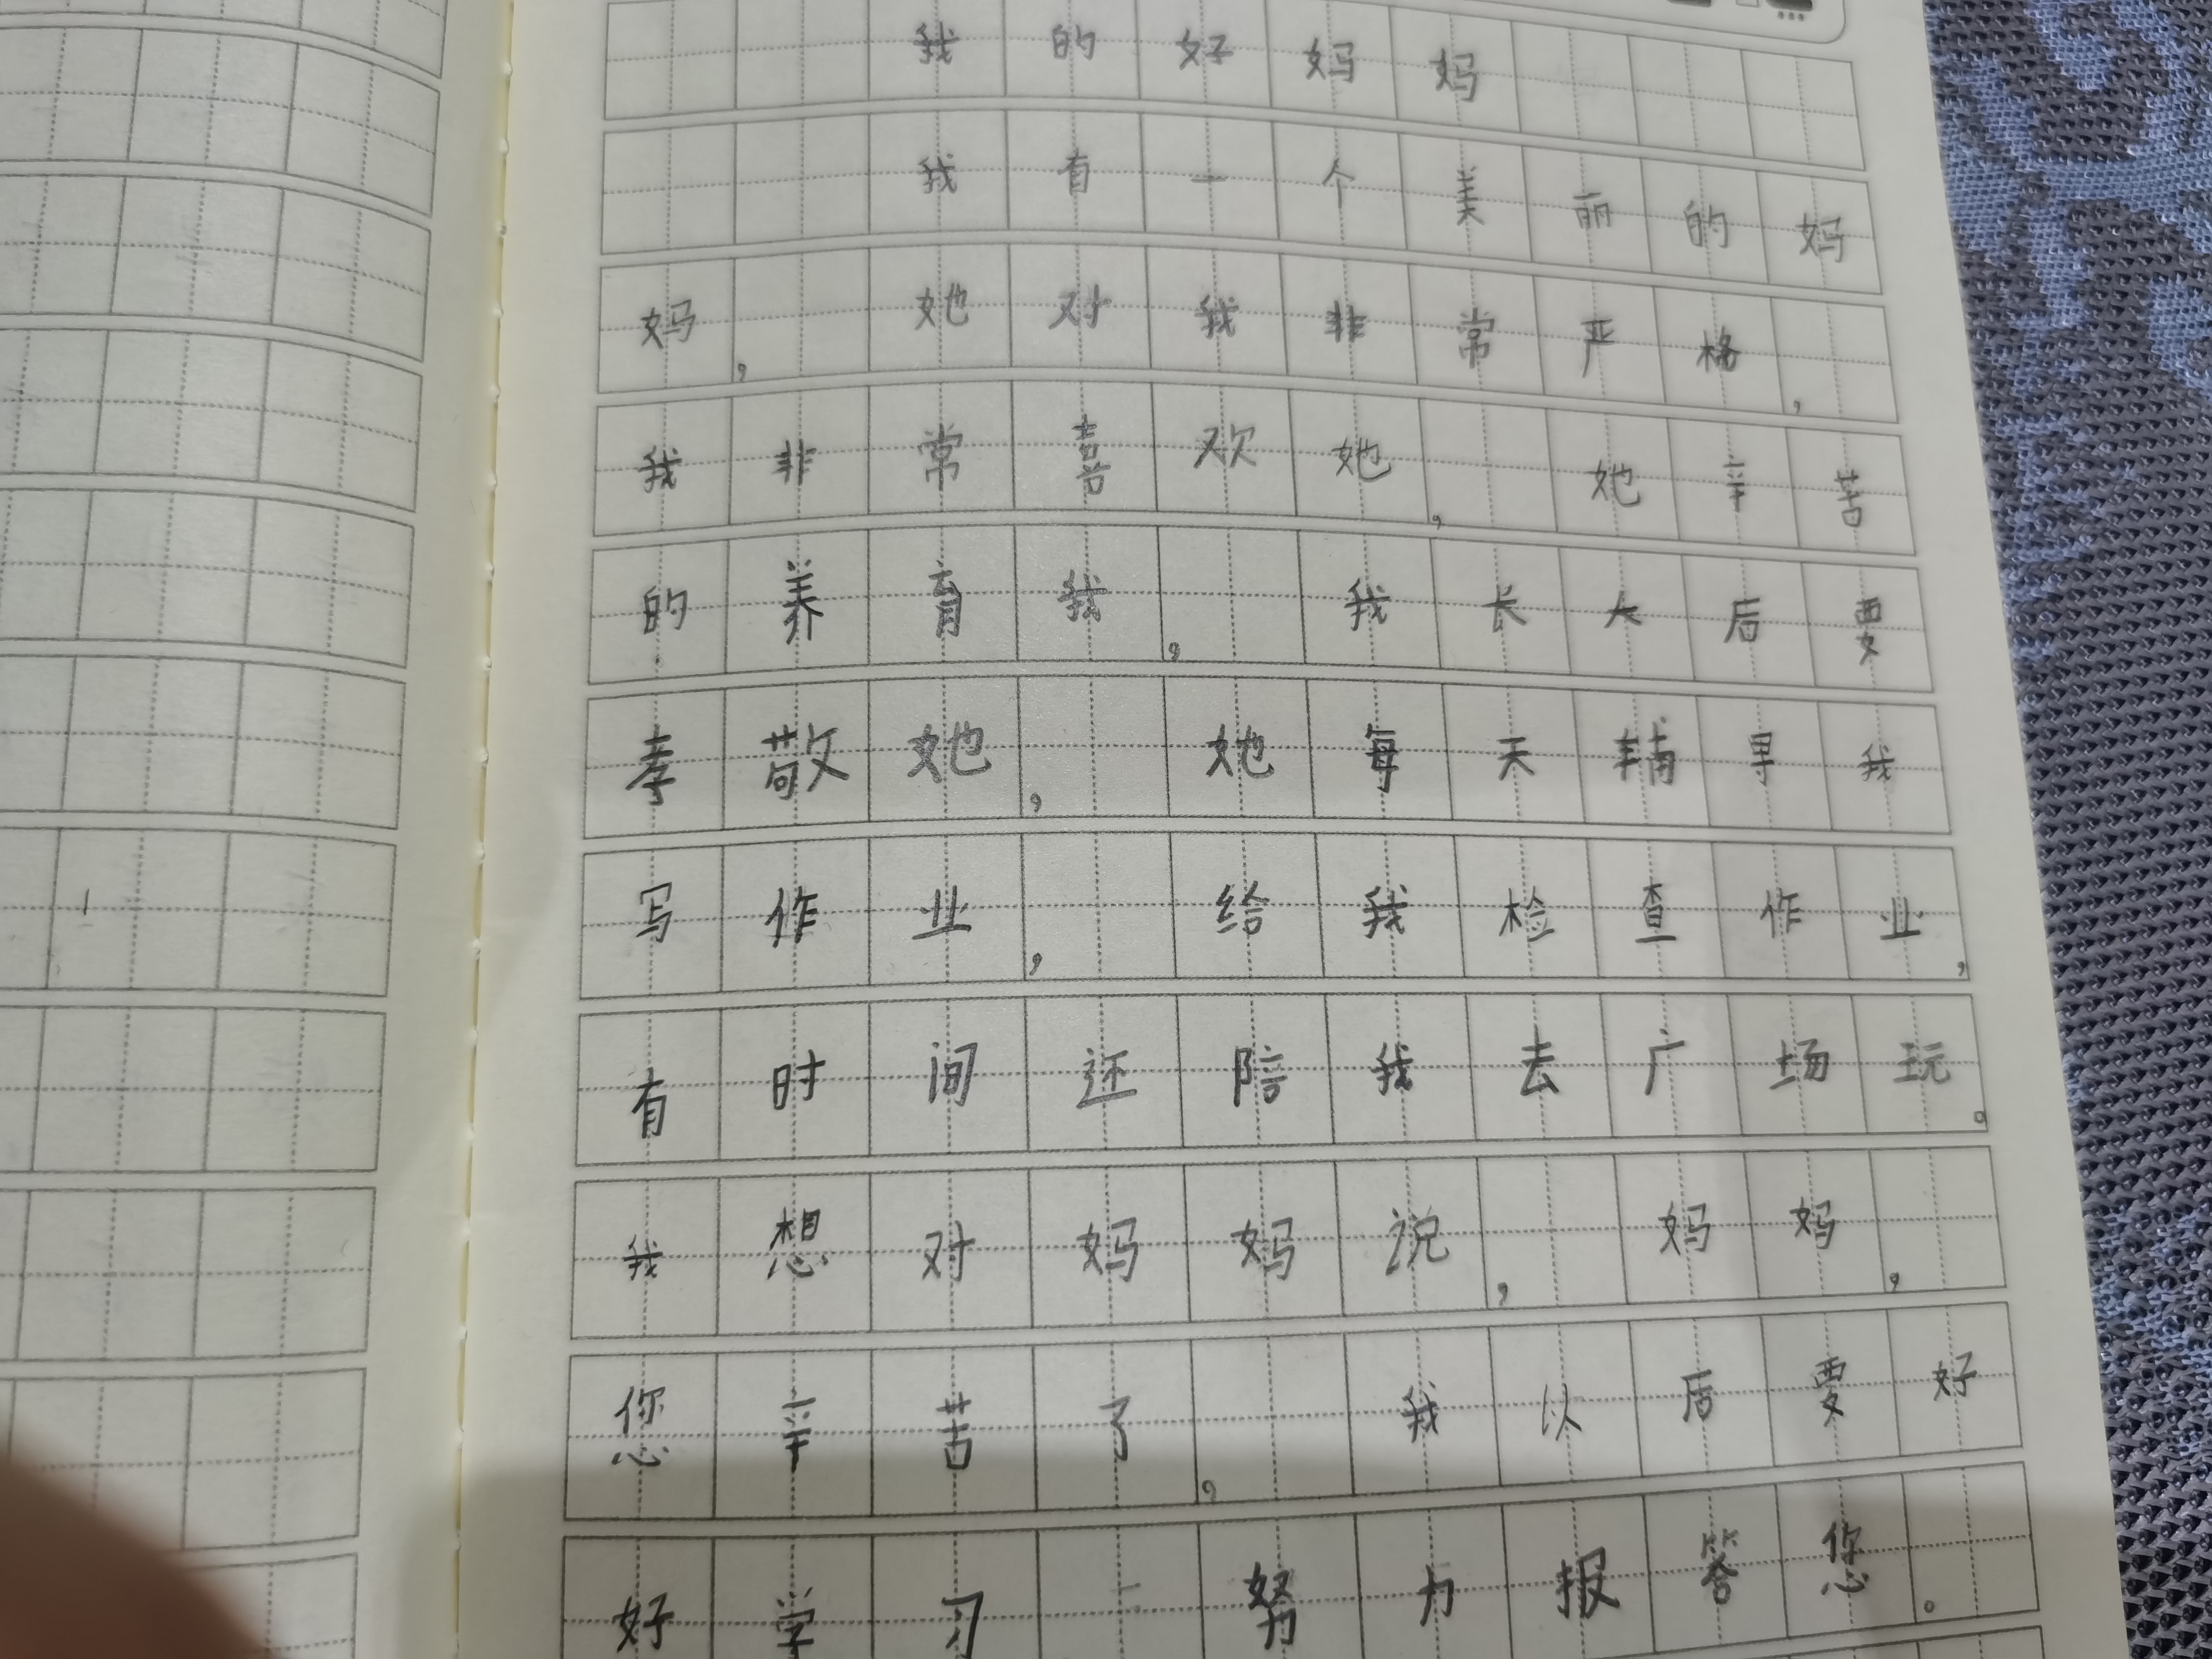 我的好妈妈
我有一个美丽的妈
妈,她对我非常严格,
我非常喜欢她,她辛苦
的养育我,我长大后要
孝敬她,她每天辅导我
写作业,给我检查作业,
有时间还陪我去广场玩。
我想对妈妈说,妈妈,
您辛苦了,我以后要好
好学习 努力报答您。